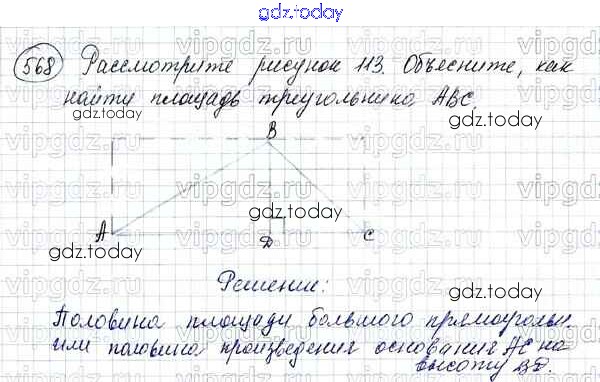 gdz.today
568 Рассмотрите рисунок 113. Объясните, как
найти площадь треугольника ABC.
gdz.today
gdz.today
B
gdz.today
A
D
C
gdz.today
gdz.today
Решение:
Половина площади большого прямоугольн.
или половина произведения основания AC на
высоту BD.
gdz.today